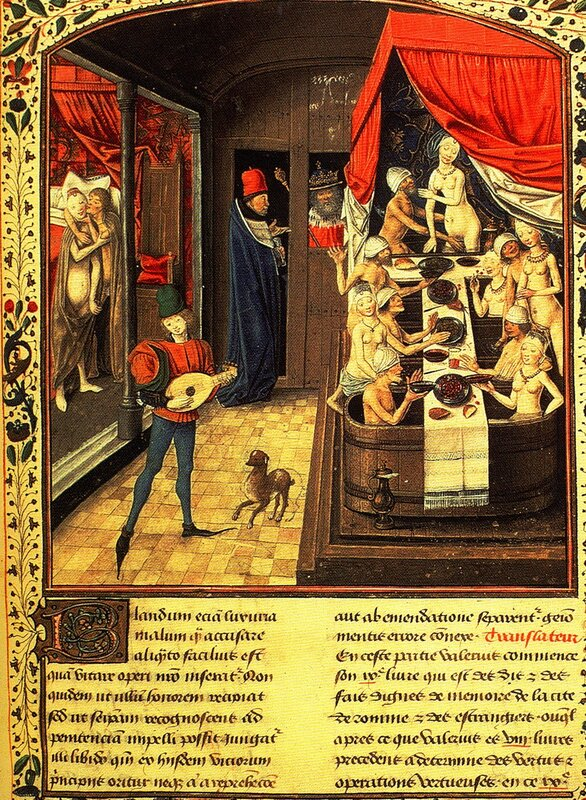 Blandum eciā luxuria
malum q̄ accusare
aliq̄to facilius est
quā vitare operi nr̄o inserat᷑ Non
quidem ut ullū honorem recipiat
sed ut seipam recognoscens ad
penitenciam impelli possit Jungat᷑
illi libido qm̄ ex hysdem viciorum
principiis oritur neqz a a reprehēcōe
aut ab emendatione separent᷑ gemīo
mentis errore cōnexe. Translateur
En ceste partie Valerius commence
son ixᵉ livre qui est des diz et des
fais dignes de memoire de la cite
de romme et des estrangiers. ouql̄
apres ce que Valerius es viii livres
precedens a determine des vertus et
operations vertueuses. en ce ixᵉ